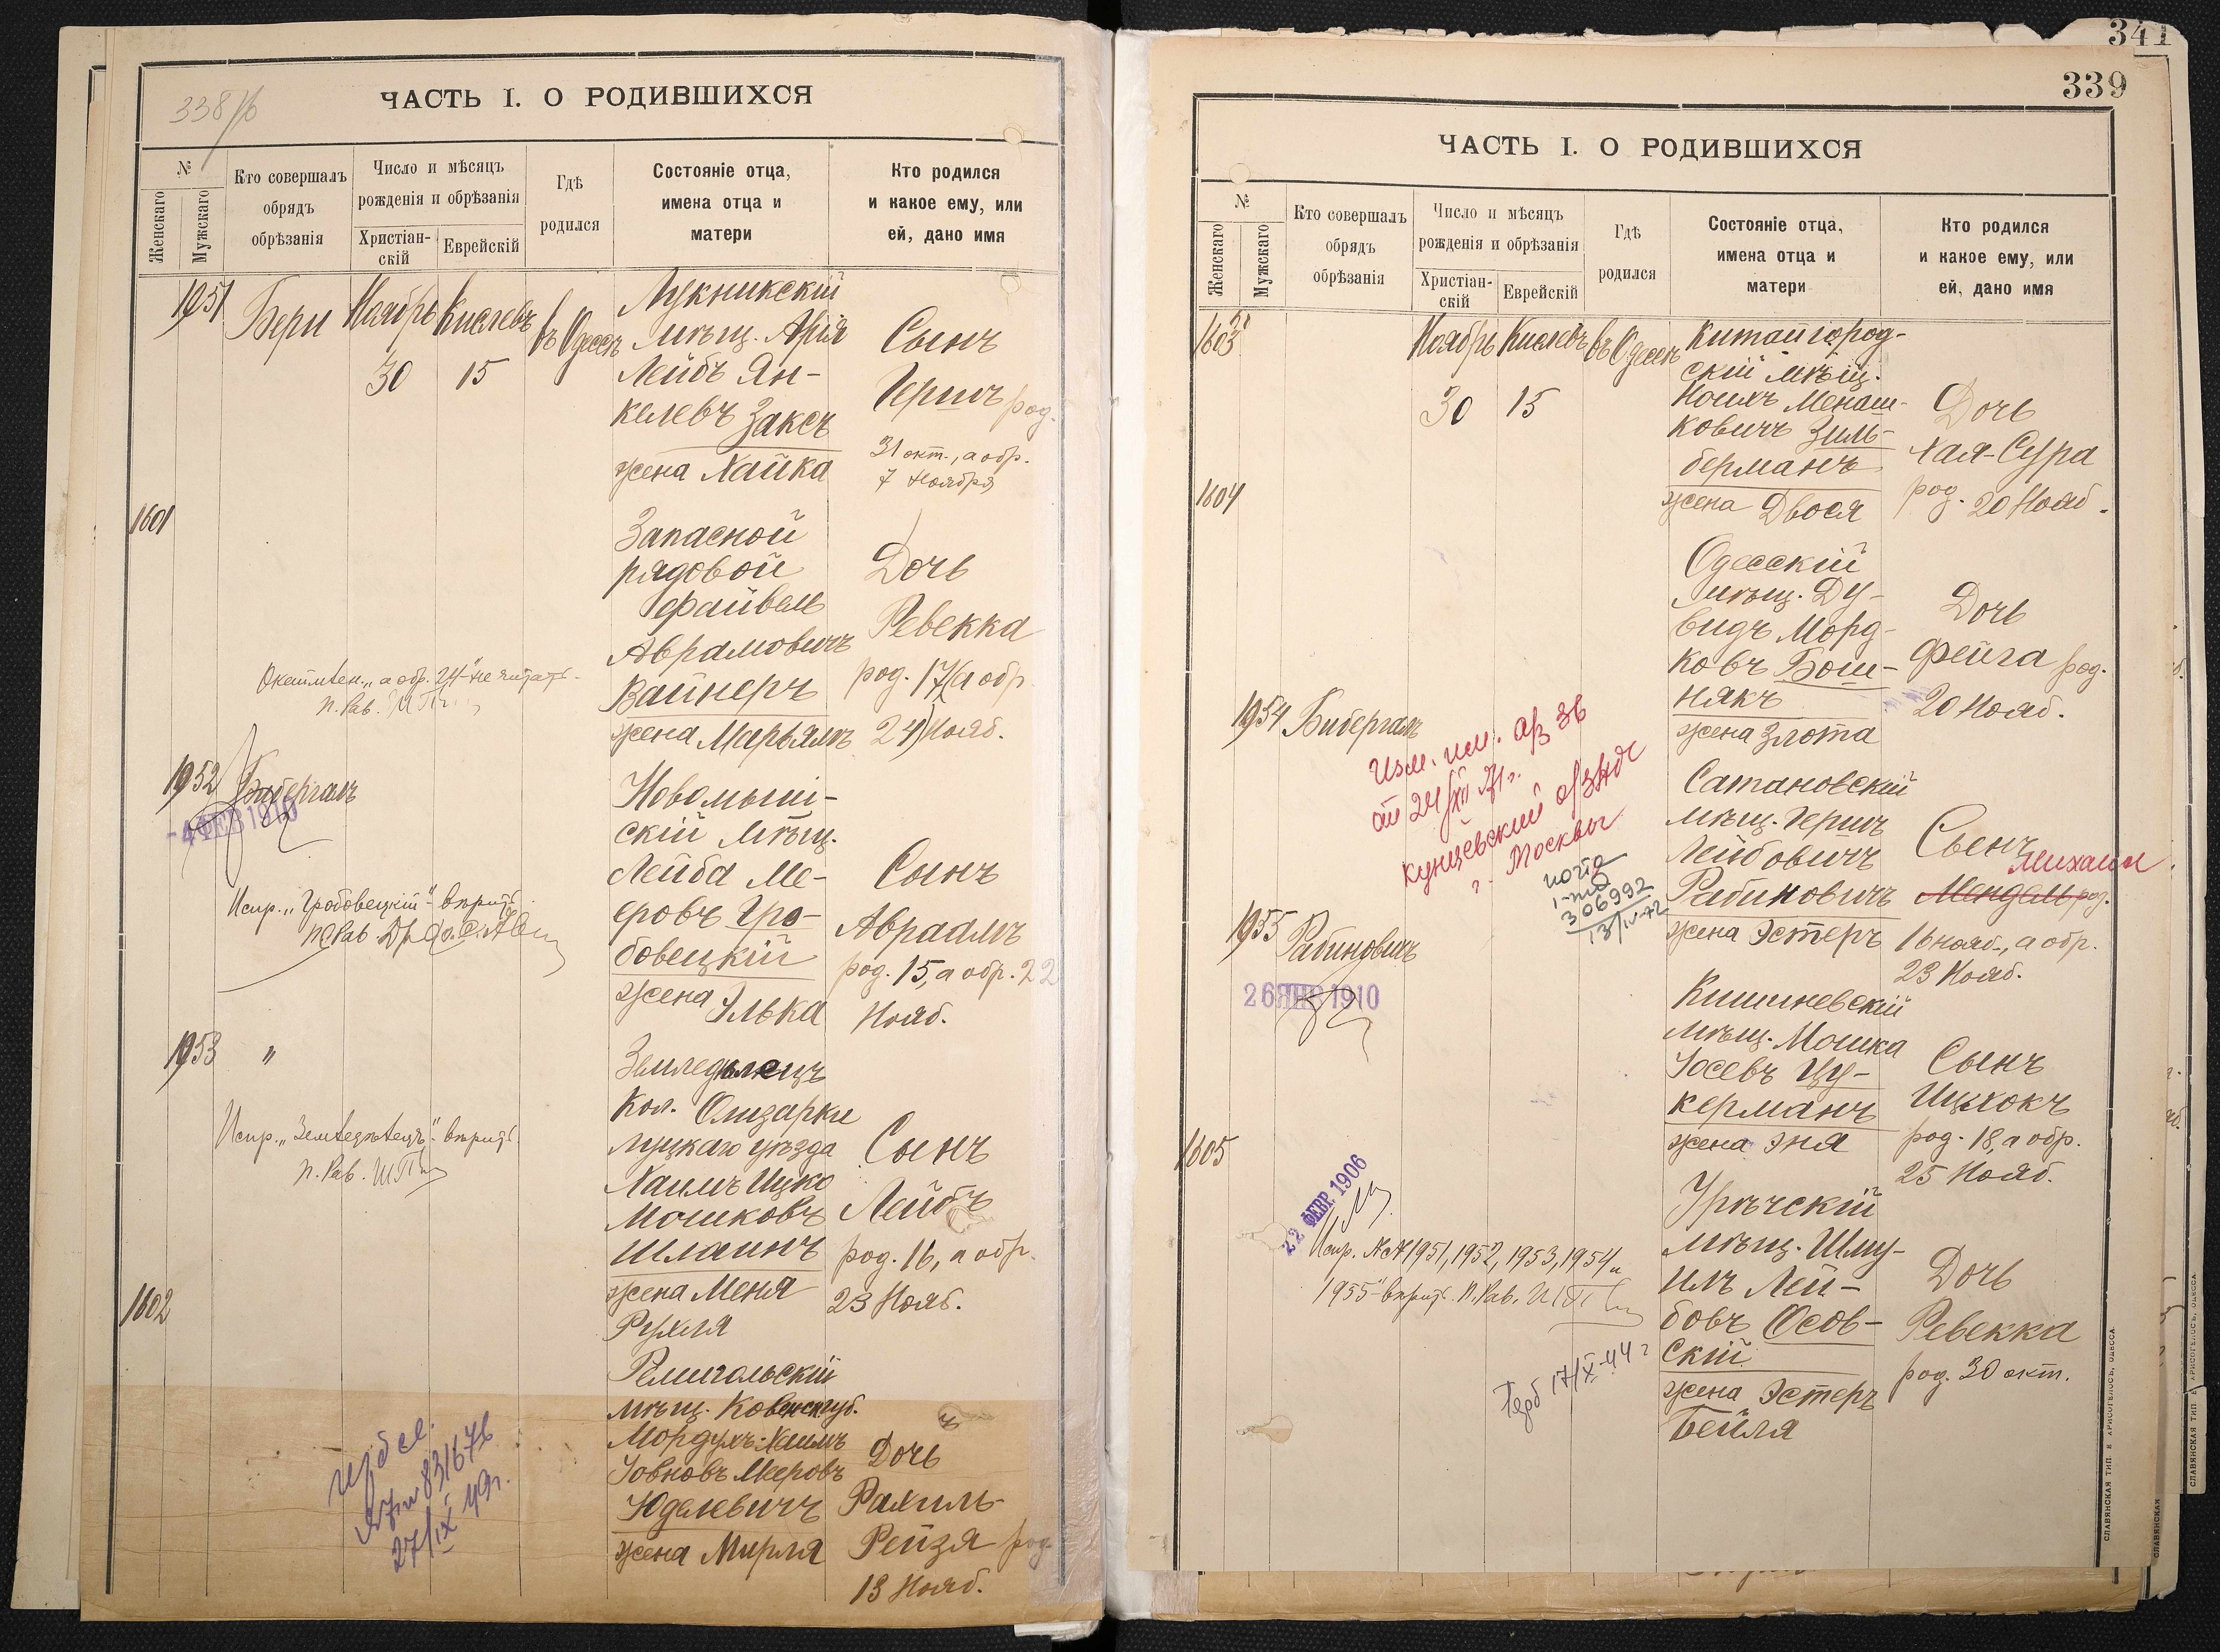 338 об
ЧАСТЬ I. О РОДИВШИХСЯ
№
Женскаго
Мужскаго
Кто совершалъ
обрядъ
обрѣзанія
Число и мѣсяцъ
рожденія и обрѣзанія
Христіан-
скій
Еврейскій
Гдѣ
родился
Состояніе отца,
имена отца и
матери
Кто родился
и какое ему, или
ей, дано имя
1951
Бери
Ноябрь
30
Кислевъ
15
въ Одессѣ
Лукникскій
мѣщ. Арія
Лейбъ Ян-
келевъ Заксъ
жена Хайка
Сынъ
Гершъ род.
31 окт., а обр.
7 Ноября
1601
Запасной
рядовой
Файвель
Аврамовичъ
Вайнеръ
жена Марьямъ
Дочь
Ревекка
род. 17 (а обр.
24) Нояб.
"а обр. 24" не читать.
п. Рав.
1952
Бибергалъ
-4 ФЕВ 1910
Испр. "Гробовецкій" вѣритъ.
Новомыш-
скій мѣщ.
Лейба Ме-
еровъ Гро-
бовецкій
жена Элька
Сынъ
Авраамъ
род. 15, а обр. 22
Нояб.
1953
"
Испр. "Земледѣлецъ" вѣритъ.
п. Рав.
Земледѣлецъ
Кол. Олизарки
Луцкаго уѣзда
Хаимъ Ицко
Мошковъ
Шлаинъ
жена Меня
Рухля
Сынъ
Лейбъ
род. 16, а обр.
23 Нояб.
1602
27/IX 49г.
Ремигольскій
мѣщ. Ковенск. губ.
Мордухъ-Хаимъ
Іовновъ Мееровъ
Юделевичъ
жена Мирля
Дочь
Рахиль-
Рейзя род.
13 Нояб.
341
339
ЧАСТЬ I. О РОДИВШИХСЯ
№
Женскаго
Мужскаго
Кто совершалъ
обрядъ
обрѣзанія
Число и мѣсяцъ
рожденія и обрѣзанія
Христіан-
скій
Еврейскій
Гдѣ
родился
Состояніе отца,
имена отца и
матери
Кто родился
и какое ему, или
ей, дано имя
1603
Ноябрь
30
Кислевъ
15
въ Одессѣ
Китайгород-
скій мѣщ.
Нохимъ Менаш-
ковичъ Зиль-
берманъ
жена Двося
Дочь
Хая-Сура
род. 20 Нояб.
1604
Одесскій
мѣщ. Ду-
видъ Морд-
ковъ Бош-
някъ
жена Злота
Дочь
Фейга род.
20 Нояб.
1954
Бибергалъ
Изм. им. а/з 36
от 24/XII 71 г.
Кунцевский о/загс
г. Москвы
306992
13/IV-72
Сатановскій
мѣщ. Гершъ
Лейбовичъ
Рабиновичъ
жена Эстеръ
Сынъ
Михаил
Мендель род.
16 нояб., а обр.
23 Нояб.
1955
Рабиновичъ
26 ЯНВ 1910
Кишиневскій
мѣщ. Мошка
Іосевъ Цу-
керманъ
жена Эня
Сынъ
Ицхокъ
род. 18, а обр.
25 Нояб.
1605
22 ФЕВР. 1906
Испр. №№ 1951, 1952, 1953, 1954 и
1955" вѣритъ. п. Рав.
17/X-44 г
Урѣчскій
мѣщ. Шму-
илъ Лей-
бовъ Осов-
скій
жена Эстеръ
Бейля
Дочь
Ревекка
род. 30 окт.
СЛАВЯНСКАЯ ТИП. Е. ХРИСОГЕЛОСЪ, ОДЕССА